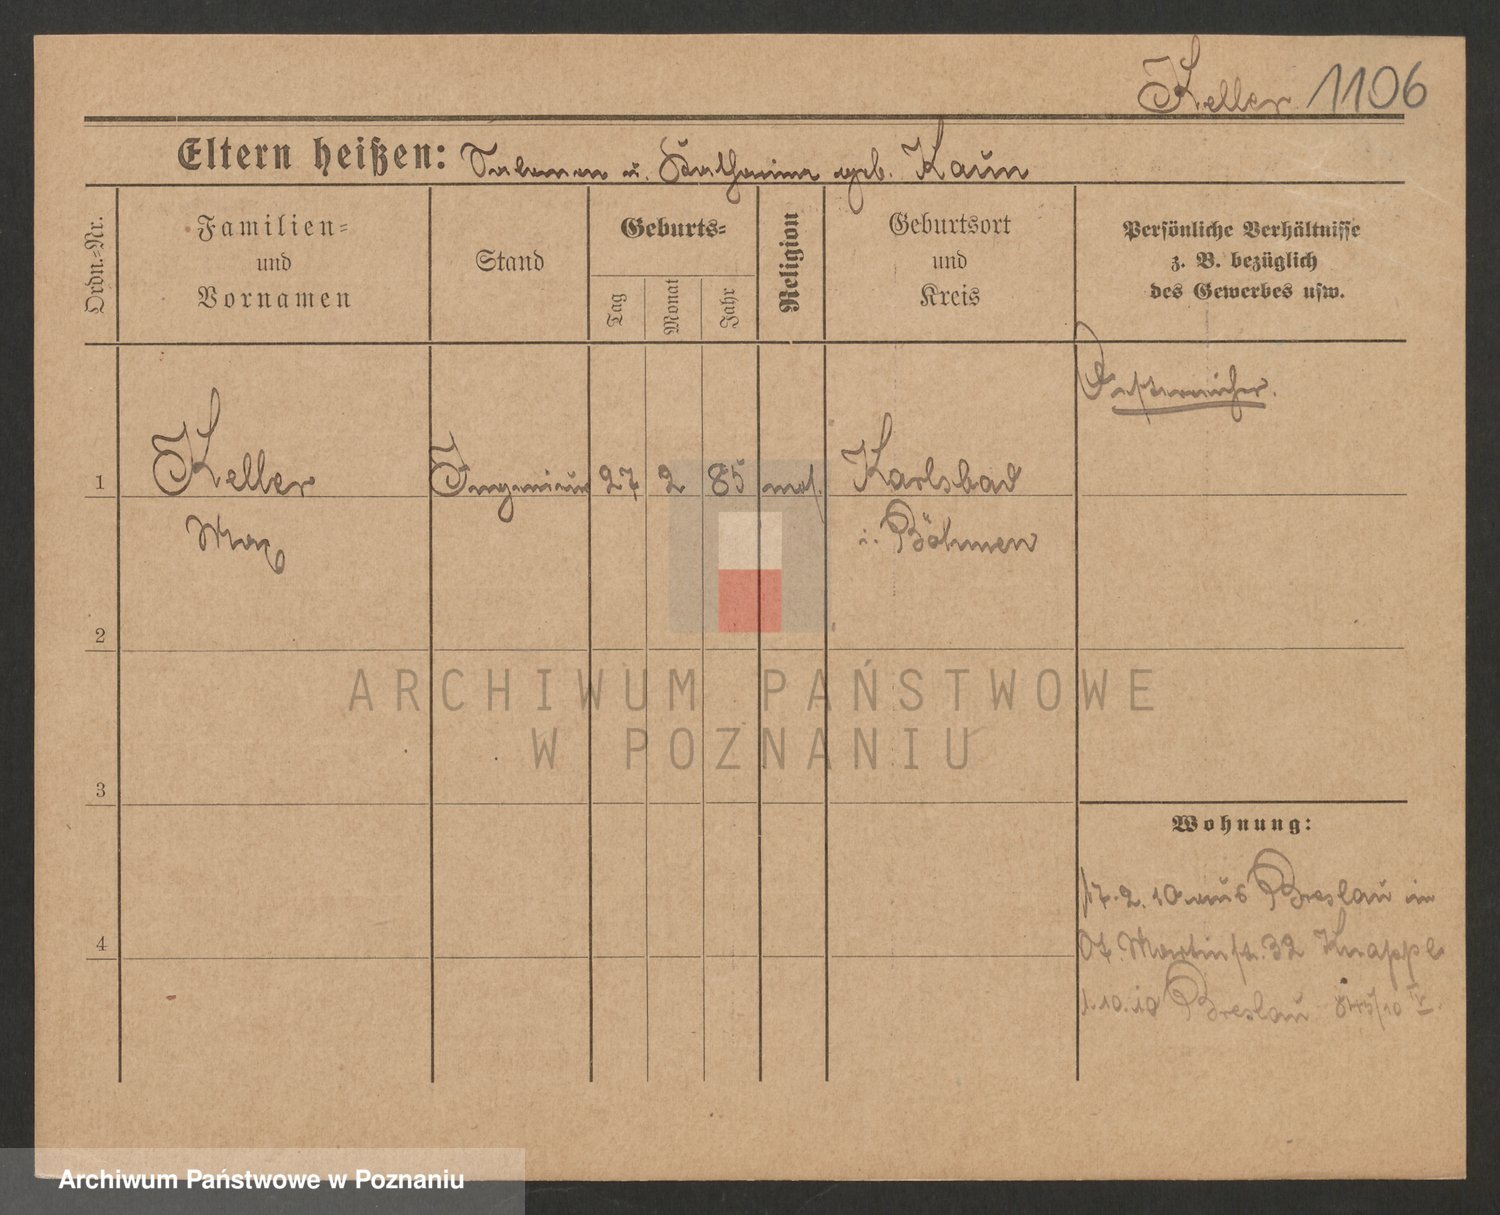 Keller 1106
Eltern heißen: Salomon u. Katharina geb. Kaun
Ordn.-Nr.
Familien-
und
Vornamen
Stand
Geburts-
Tag
Monat
Jahr
Religion
Geburtsort
und
Kreis
Persönliche Verhältnisse
z. B. bezüglich
des Gewerbes usw.
Oesterreicher.
1 Keller Ingenieur 27 2 85 mos. Karlsbad
Max
i. Böhmen
2
3
4
Wohnung:
17.2.10 aus Breslau in
St. Martinstr. 32 Knappe
1.10.10 Breslau
ARCHIWUM PAŃSTWOWE
W POZNANIU
Archiwum Państwowe w Poznaniu